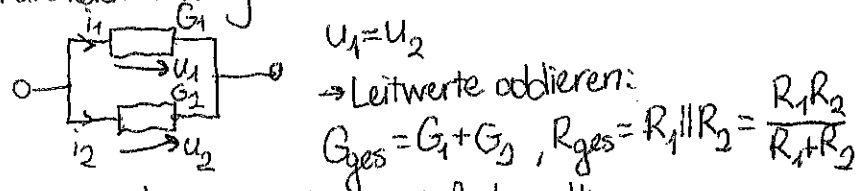 i₁ G₁
u₁=u₂
u₁
G₂
→ Leitwerte addieren:
i₂ u₂
G_ges = G₁+G₂, R_ges = R₁||R₂ = R₁R₂/(R₁+R₂)